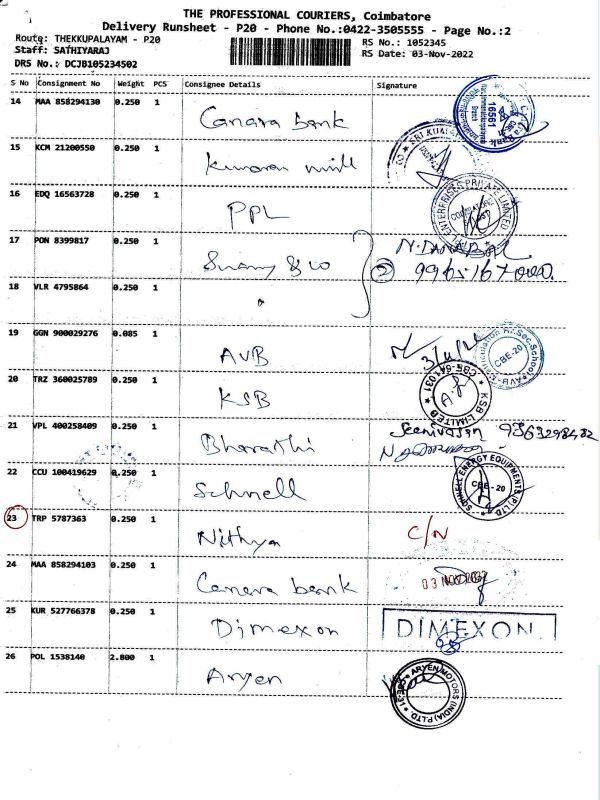 THE PROFESSIONAL COURIERS, Coimbatore
Delivery Runsheet - P20 - Phone No.:0422-3505555 - Page No.:2
Route: THEKKUPALAYAM - P20
Staff: SATHIYARAJ
DRS No.: DCJB105234502
RS No.: 1052345
RS Date: 03-Nov-2022
S No Consignment No Weight PCS Consignee Details Signature
14 MAA 858294130 0.250 1 Canara Bank
16561
15 KCM 21200550 0.250 1 Kumaran mill
16 EDQ 16563728 0.250 1 PPL
ENTERPRISES PRIVATE LIMITED
17 PON 8399817 0.250 1 Swamy & co 2
18 VLR 4795864 0.250 1
19 GGN 900029276 0.085 1 AVB
CBE-20
20 TRZ 360025789 0.250 1 KSB
KSB LIMITED
21 VPL 400258409 0.250 1 Bharathi Seenivasan
22 CCU 100419629 0.250 1 Schnell
ENERGY EQUIPMENTS (P) LTD
CBE - 20
23 TRP 5787363 0.250 1 Nithya C/N
24 MAA 858294103 0.250 1 Canara bank
03 NOV 2022
25 KUR 527766378 0.250 1 Dimexon DIMEXON
26 POL 1538140 2.800 1 Aryen
ARYEN MOTORS (INDIA) P LTD